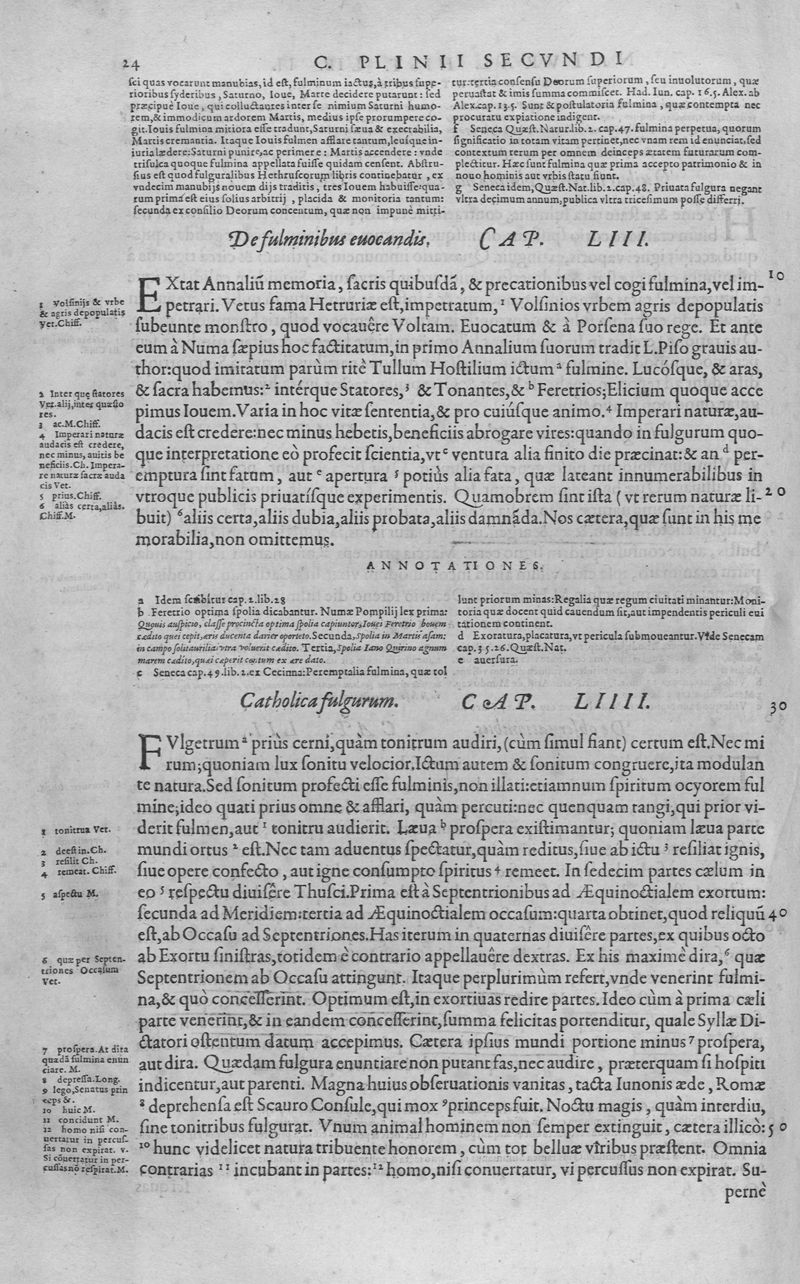 24
C. PLINII SECVNDI
ſci quas vocarunt manubias, id eſt, fulminum iactus, à tribus ſupe-
rioribus ſyderibus, Saturno, Ioue, Marte decidere putarunt: ſed
præcipuè Ioue, qui colluctantes inter ſe nimium Saturni humo-
rem, & immodicum ardorem Martis, medius ipſe prorumpere co-
git. Iouis fulmina mitiora eſſe tradunt, Saturni ſæua & execrabilia,
Martis cremantia. Itaque Iouis fulmen afflare tantum, leuſque in-
iuria lædere: Saturni punire, ac perimere: Martis accendere: vnde
trifulca quoque fulmina appellata fuiſſe quidam cenſent. Abſtru-
ſius eſt quod fulguralibus Hethruſcorum libris continebatur, ex
vndecim manubijs nouem dijs traditis, tres Iouem habuiſſe: qua-
rum prima eſt eius ſolius arbitrij, placida & monitoria tantum:
ſecunda ex conſilio Deorum concentum, quæ non impunè mitti-
tur: tertia conſenſu Deorum ſuperiorum, ſeu inuolutorum, quæ
peruaſtat & imis ſumma commiſcet. Had. Iun. cap. 16.5. Alex. ab
Alex. cap. 13.5. Sunt & poſtulatoria fulmina, quæ contempta nec
procuratu expiatione indigent.
f Seneca Quæſt. Natur. lib. 2. cap. 47. fulmina perpetua, quorum
ſignificatio in totam vitam pertinet, nec vnam rem id enunciat, ſed
contextum rerum per omnem deinceps ætatem futurarum com-
plectitur. Hæc ſunt fulmina quæ prima accepto patrimonio & in
nouo hominis aut vrbis ſtatu fiunt.
g Seneca idem, Quæſt. Nat. lib. 2. cap. 48. Priuata fulgura negant
vltra decimum annum, publica vltra triceſimum poſſe differri.
De fulminibus euocandis. CAP. LIII.
EXtat Annaliū memoria, ſacris quibuſdā, & precationibus vel cogi fulmina, vel im- 10
petrari. Vetus fama Hetruriæ eſt, impetratum, 1 Volſinios vrbem agris depopulatis
ſubeunte monſtro, quod vocauêre Voltam. Euocatum & à Porſena ſuo rege. Et ante
eum à Numa ſæpius hoc factitatum, in primo Annalium ſuorum tradit L. Piſo grauis au-
thor: quod imitatum parùm ritè Tullum Hoſtilium ictum a fulmine. Lucóſque, & aras,
& ſacra habemus: 2 intérque Statores, 3 & Tonantes, & b Feretrios; Elicium quoque acce
pimus Iouem. Varia in hoc vitæ ſententia, & pro cuiúſque animo. 4 Imperari naturæ, au-
dacis eſt credere: nec minus hebetis, beneficiis abrogare vires: quando in fulgurum quo-
que interpretatione eò profecit ſcientia, vt c ventura alia finito die præcinat: & an d per-
emptura ſint fatum, aut e apertura 5 potiùs alia fata, quæ lateant innumerabilibus in
vtroque publicis priuatíſque experimentis. Quamobrem ſint iſta (vt rerum naturæ li- 20
buit) 6 aliis certa, aliis dubia, aliis probata, aliis damnáda. Nos cætera, quæ ſunt in his me
morabilia, non omittemus.
1 Volſinijs & vrbe
& agris depopulatis
Vet. Chiff.
2 Inter quę ſtatores
Vet. alij, inter quæſto
res.
3 ac. M. Chiff.
4 Imperari naturæ
audacis eſt credere,
nec minus, auitis be
neficiis. Ch. Impera-
re naturæ ſacræ auda
cis Vet.
5 prius. Chiff.
6 aliàs certa, aliàs.
Chiff. M.
ANNOTATIONES.
a Idem ſcribitur cap. 2. lib. 28
b Feretrio optima ſpolia dicabantur. Numæ Pompilij lex prima:
Quouis auſpicio, claſſe procincta optima ſpolia capiuntor, Ioui Feretrio bouem
cædito quei cepit, æris ducenta darier oporteto. Secunda, Spolia in Martis aſam:
in campo ſolitaurilia vtra voluerit cædito. Tertia, Spolia Iano Quirino agnum
marem cædito, quei ceperit captum ex ære dato.
c Seneca cap. 49. lib. 2. ex Cecinna: Peremptalia fulmina, quæ tol
lunt priorum minas: Regalia quæ regum ciuitati minantur: Moni-
toria quæ docent quid cauendum ſit, aut impendentis periculi eui
tationem continent.
d Exoratura, placatura, vt pericula ſubmoueantur. Vide Senecam
cap. 35. 26. Quæſt. Nat.
e auerſura.
Catholica fulgurum. CAP. LIIII. 30
FVlgetrum a priùs cerni, quàm tonitrum audiri, (cùm ſimul fiant) certum eſt. Nec mi
rum; quoniam lux ſonitu velocior. Ictum autem & ſonitum congruere, ita modulan
te natura. Sed ſonitum profecti eſſe fulminis, non illati: etiamnum ſpiritum ocyorem ful
mine; ideo quati prius omne & afflari, quàm percuti: nec quenquam tangi, qui prior vi-
derit fulmen, aut 1 tonitru audierit. Læua b proſpera exiſtimantur; quoniam læua parte
mundi ortus 2 eſt. Nec tam aduentus ſpectatur, quàm reditus, ſiue ab ictu 3 reſiliat ignis,
ſiue opere confecto, aut igne conſumpto ſpiritus 4 remeet. In ſedecim partes cælum in
eo 5 reſpectu diuiſêre Thuſci. Prima eſt à Septentrionibus ad Æquinoctialem exortum:
ſecunda ad Meridiem: tertia ad Æquinoctialem occaſum: quarta obtinet, quod reliquū 40
eſt, ab Occaſu ad Septentriones. Has iterum in quaternas diuiſêre partes, ex quibus octo
ab Exortu ſiniſtras, totidem è contrario appellauêre dextras. Ex his maximè dira, 6 quæ
Septentrionem ab Occaſu attingunt. Itaque perplurimùm refert, vnde venerint fulmi-
na, & quò conceſſerint. Optimum eſt, in exortiuas redire partes. Ideo cùm à prima cæli
parte venerint, & in eandem conceſſerint, ſumma felicitas portenditur, quale Syllæ Di-
ctatori oſtentum datum accepimus. Cætera ipſius mundi portione minus 7 proſpera,
aut dira. Quædam fulgura enuntiare non putant fas, nec audire, præterquam ſi hoſpiti
indicentur, aut parenti. Magna huius obſeruationis vanitas, tacta Iunonis æde, Romæ
8 deprehenſa eſt Scauro Conſule, qui mox 9 princeps fuit. Noctu magis, quàm interdiu,
ſine tonitribus fulgurat. Vnum animal hominem non ſemper extinguit, cætera illicò: 50
10 hunc videlicet natura tribuente honorem, cùm tot belluæ viribus præſtent. Omnia
contrarias 11 incubant in partes: 12 homo, niſi conuertatur, vi percuſſus non expirat. Su-
pernè
1 tonitrua Vet.
2 deeſt in. Ch.
3 reſilit Ch.
4 remeat. Chiff.
5 aſpectu M.
6 quæ per Septen-
triones Occaſum
Vet.
7 proſpera. At dira
quædā fulmina enun
ciare. M.
8 depreſſa. Long.
9 lego, Senatus prin
ceps &.
10 huic M.
11 concidunt M.
12 homo niſi con-
uertatur in percuſ-
ſas non expirat. v.
Si cōuertatur in per-
cuſſas nō reſpirat. M.